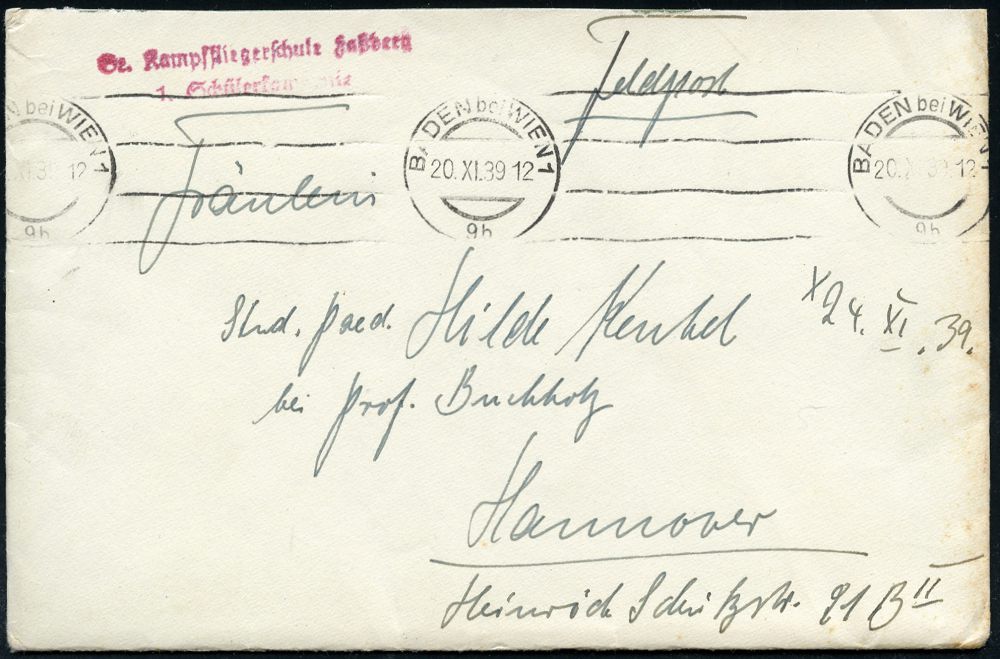 Gr. Kampffliegerschule Faßberg
1. Schülerkompanie
Feldpost
BADEN bei WIEN 1
20. XI. 39 12
9h
BADEN bei WIEN 1
20. XI. 39 12
9h
BADEN bei WIEN 1
20. XI. 39 12
9h
Fräulein
Stud. paed. Hilde
x 24. XI. 39.
bei Prof. Buchholz
Hannover
Heinrich Schützstr. 21 B II